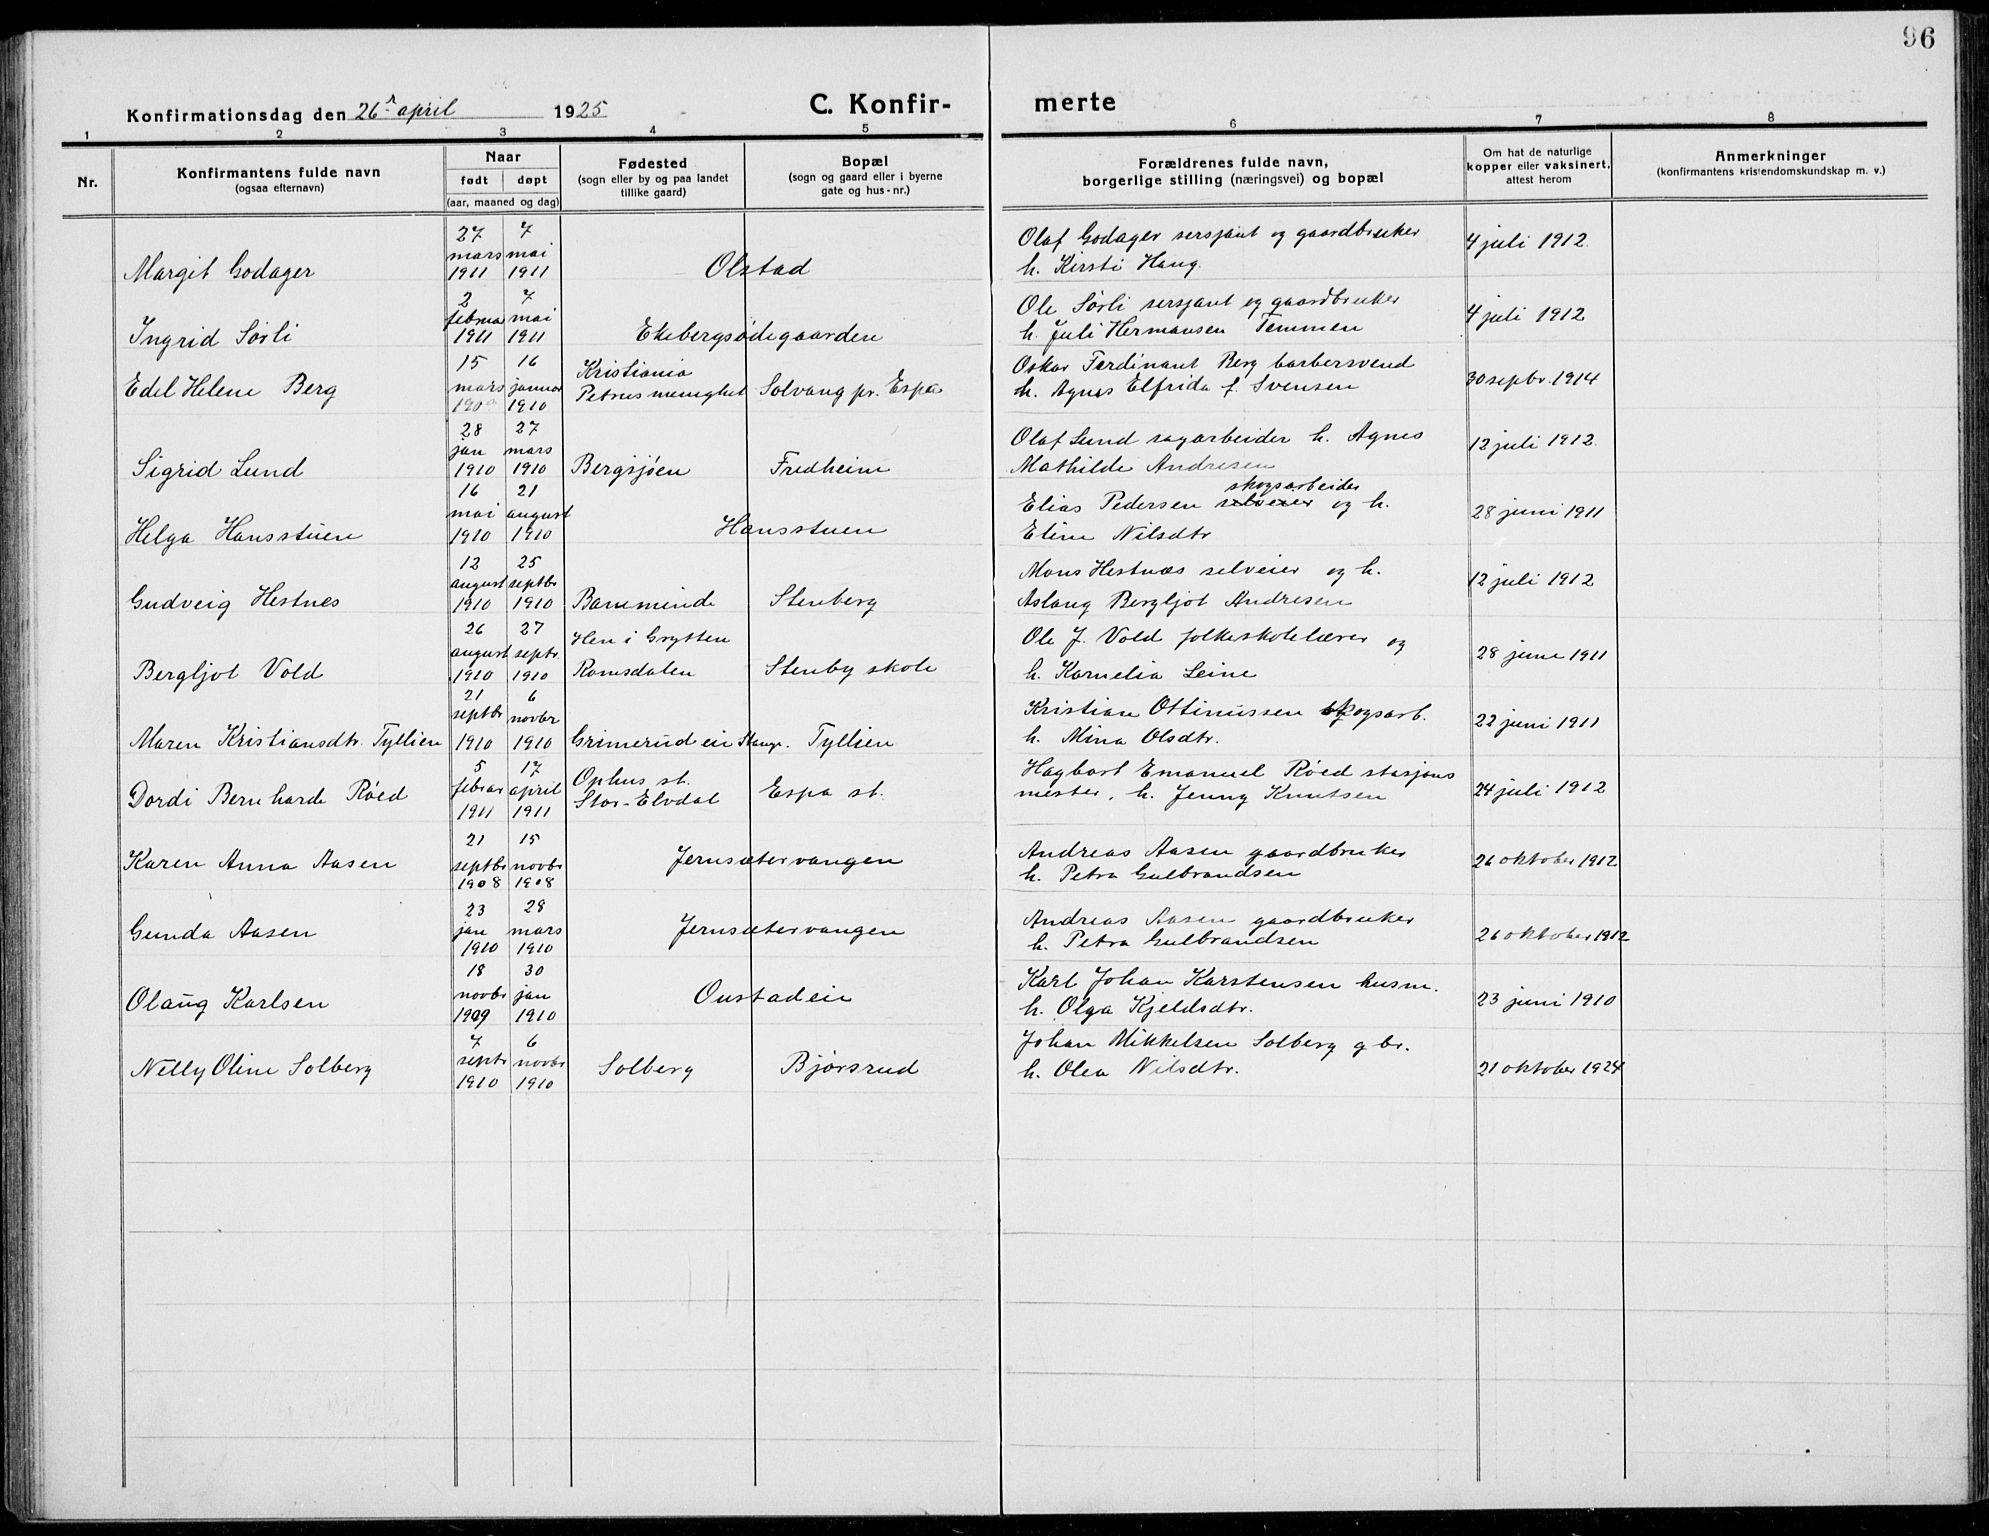 96
Konfirmationsdag den 26de april 1925
C. Konfir-
merte
1 2 3 4 5 6 7 8
Nr.
Konfirmantens fulde navn
(ogsaa efternavn)
Naar
født døpt
(aar, maaned og dag)
Fødested
(sogn eller by og paa landet
tillike gaard)
Bopæl
(sogn og gaard eller i byerne
gate og hus-nr.)
Forældrenes fulde navn,
borgerlige stilling (næringsvei) og bopæl
Om hat de naturlige
kopper eller vaksinert,
attest herom
Anmerkninger
(konfirmantens kristendomskundskap m. v.)
27 7
mars mai
1911 1911
Margit Godager
Olstad
Olaf Godager sersjant og gaardbruker
h. Kirsti Haug.
4 juli 1912.
2 7
februa mai
1911 1911
Ingrid Sørli
Ekebergsødegaarden
Ole Sørli sersjant og gaardbruker
h. Juli Hermansen Temmen
4 juli 1912
15 16
mars januar
1909 1910
Edel Helene Berg
Kristiania
Petrus menighet
Solvang pr. Espa
Oskar Ferdinant Berg barbersvend
h. Agnes Elfrida f. Svensen
30 sepbr. 1914
28 27
jan mars
1910 1910
Sigrid Lund
Bergsjøen
Fredheim
Olaf Lund sagarbeider h. Agnes
Mathilde Andresen
12 juli 1912.
16 21
mai august
1910 1910
Helga Hansstuen
Hansstuen
skogsarbeider
Elias Pedersen selveier og h.
Eline Nilsdtr
28 juni 1911
12 25
august septbr
1910 1910
Gudveig Hestnes
Baneminde
Stenberg
Mons Hestnæs selveier og h.
Aslaug Bergljot Andresen
12 juli 1912
26 27
august septr.
1910 1910
Bergljot Vold
Hen i Grytten
Romsdalen
Stenby skole
Ole J. Vold folkeskolelærer og
h. Kornelia Leine
28 june 1911
21 6
septbr novbr
1910 1910
Maren Kristiansdtr. Tyllien
Grimerud eie Stange.
Tyllien
Kristian Ottinussen skogsarb.
h. Mina Olsdtr.
22 juni 1911
5 17
februar april
1911 1911
Dordi Bernharde Røed
Ophus st.
Stor-Elvdal
Espa st.
Hagbart Emanuel Røed stasjons
mester, h. Jenny Knutsen
24 juli 1912
21 15
septbr novbr
1908 1908
Karen Anna Aasen
Jernsætervangen
Andreas Aasen gaardbruker
h. Petra Gulbrandsen
26 oktober 1912
23 28
jan mars
1910 1910
Gunda Aasen
Jernsætervangen
Andreas Aasen gaardbruker
h. Petra Gulbrandsen
26 oktober 1912
18 30
novbr jan
1909 1910
Olaug Karlsen
Oustadeie
Karl Johan Karstensen husm.
h. Olga Kjeldsdtr.
23 juni 1910
7 6
septbr novbr
1910 1910
Nelly Oline Solberg
Solberg
Bjørsrud
Johan Mikkelsen Solberg g br.
h. Olea Nilsdtr.
21 oktober 1924